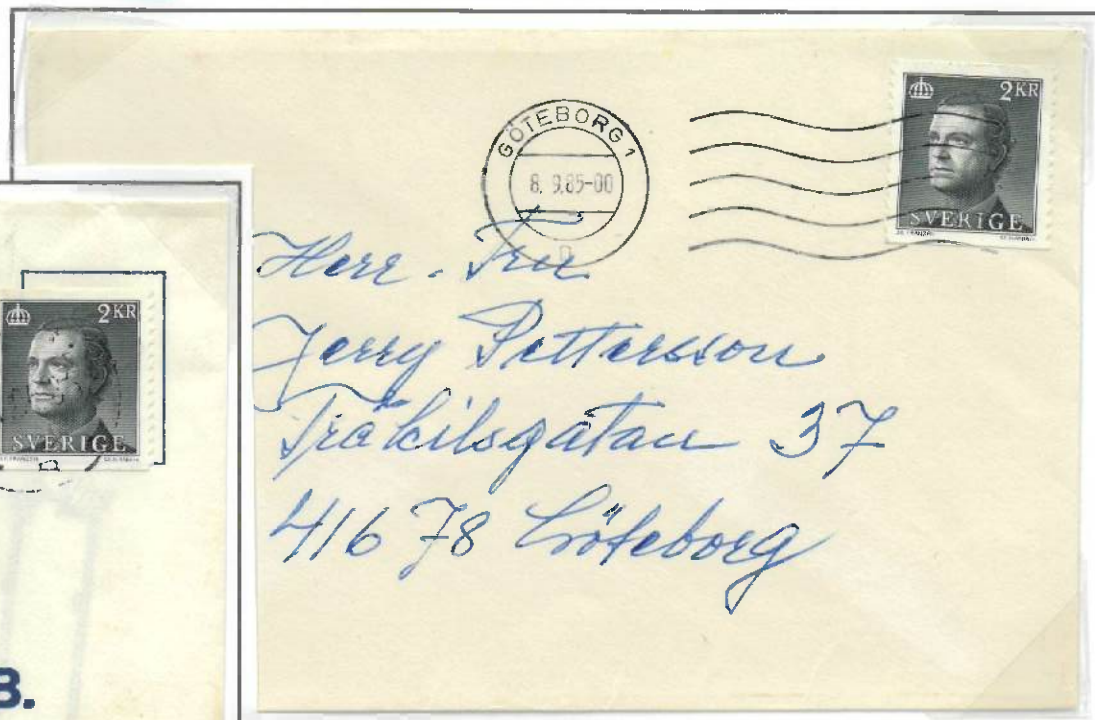 GÖTEBORG 1
8. 9.85-00
2 KR
SVERIGE
Herr. Fru
Jerry Pettersson
Träkilsgatan 37
416 78 Göteborg
2 KR
SVERIGE
B.